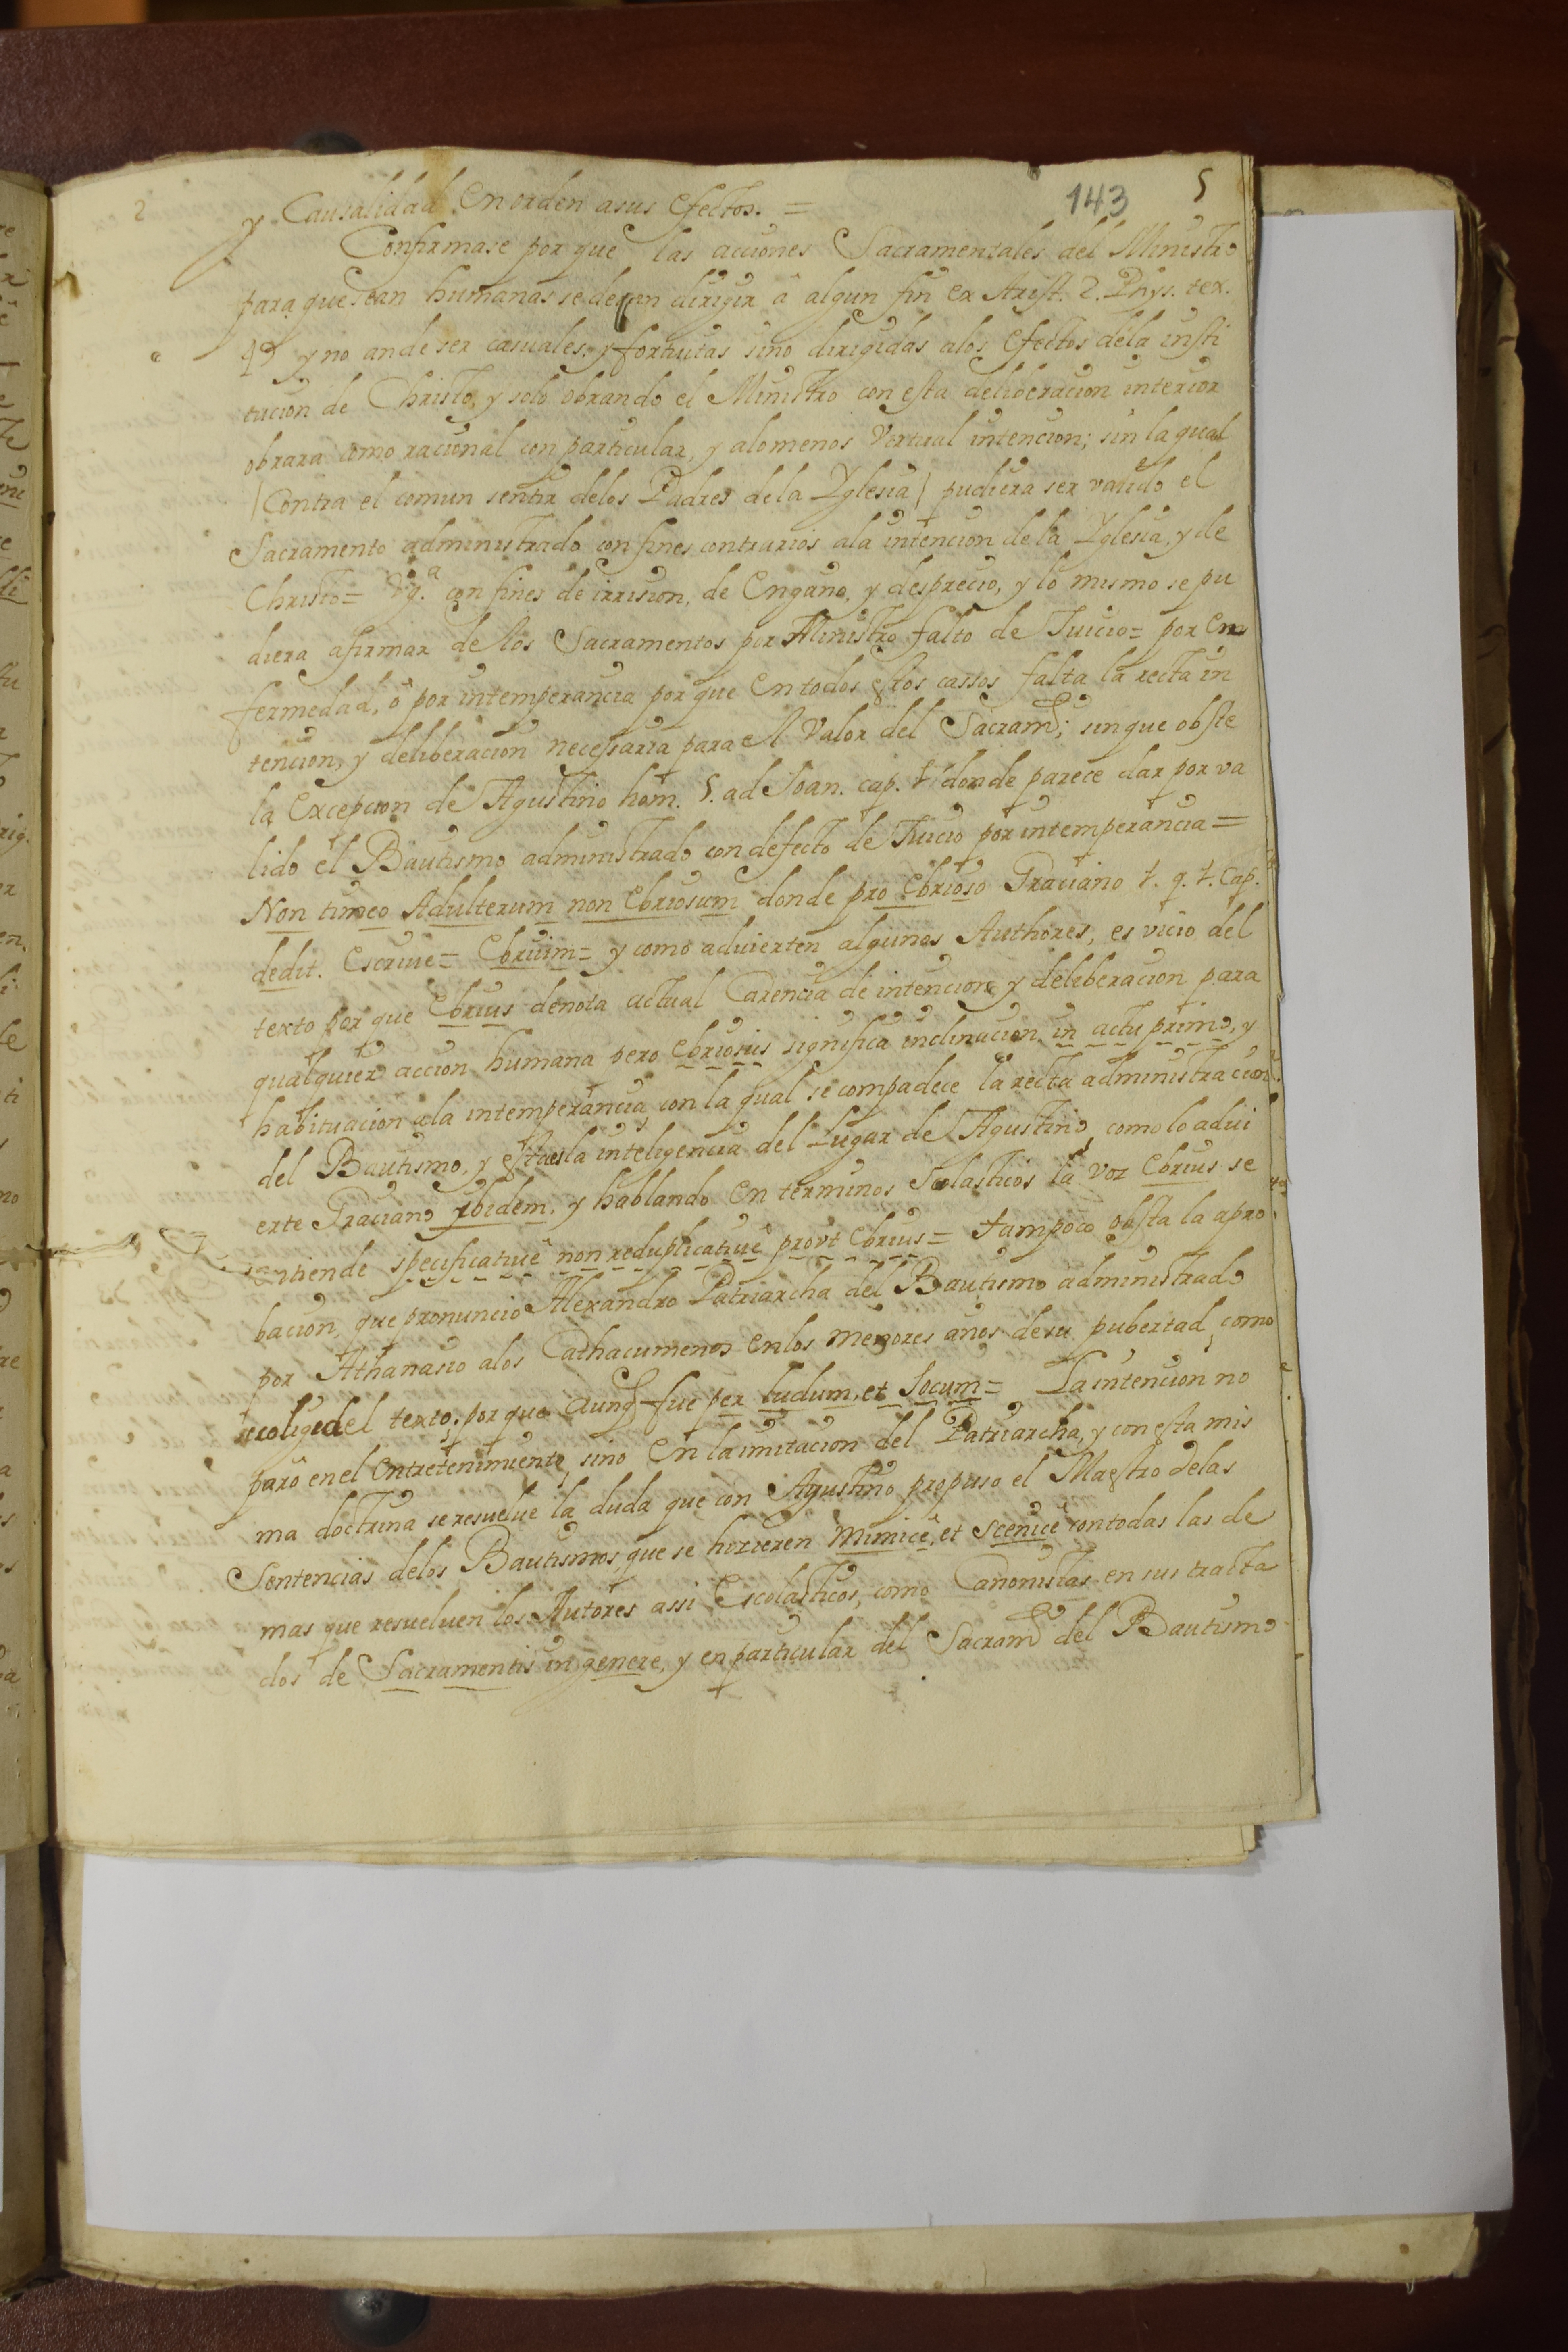 2
143
5
y Causalidad en orden asus efectos. =
Confirmase por que las acciones Sacramentales del Ministro
para que sean humanas se deben dirigir â algun fin ex Arist. 2. Phys. tex.
y no ande ser casuales, y fortuitas sino dirigidas alos efectos dela insti
tucion de Christo, y solo obrando el Ministro con esta deliberacion interior
obrara como racional con particular, y alomenos Vertual intencion; sin la qual
(Contra el comun sentir delos Padres dela Yglesia) pudiera ser valido el
Sacramento administrado con fines contrarios ala intencion de la Yglesia, y de
Christo = Vg.ª con fines de irrision, de Engaño, y desprecio, y lo mismo se pu
diera afirmar de los Sacramentos por Ministro falto de Juicio = por En
fermedad, ô por intemperancia por que en todos estos cassos falta la recta in
tencion, y deliberacion necessaria para el Valor del Sacramto; sin que obste
la Excepcion de Agustino hom. 5. ad Joan. cap. 1 donde parece dar por va
lido el Bautismo administrado con defecto de Juicio por intemperancia =
Non timeo Adulterum non Ebriosum donde pro Ebrioso Graciano 1. q. 1. Cap.
dedit. Escriue = Ebrium = y como aduierten algunos Authores, es vicio del
texto por que Ebrius denota actual Carencia de intencion y deliberacion para
qualquier accion humana pero Ebriosus significa inclinacion in actu primo, y
habituacion ala intemperancia, con la qual se compadece la recta administracion
del Bautismo, y esta es la inteligencia del Lugar de Agustino, como lo adui
erte Graciano ybidem. y hablando en terminos Scolasticos la voz Ebrius se
entiende specificatiuê non reduplicatiuê prout Ebrius = tampoco obsta la apro
bacion, que pronuncio Alexandro Patriarcha del Bautismo administrado
por Athanasio alos Cathacumenos en los menores años de su pubertad, como
se colige del texto, por que aunq fue per ludum, et Jocum = La intencion no
parô en el entretenimiento, sino en la imitacion del Patriarcha, y con esta mis
ma doctrina se resuelve la duda que con Agustino propuso el Maestro delas
Sentencias delos Bautismos, que se hizieren Mimicê, et Scenicê con todas las de
mas que resueluen los Autores assi Escolasticos, como Canonistas en sus tracta
dos de Sacramentis in genere, y en particular del Sacramto del Bautismo